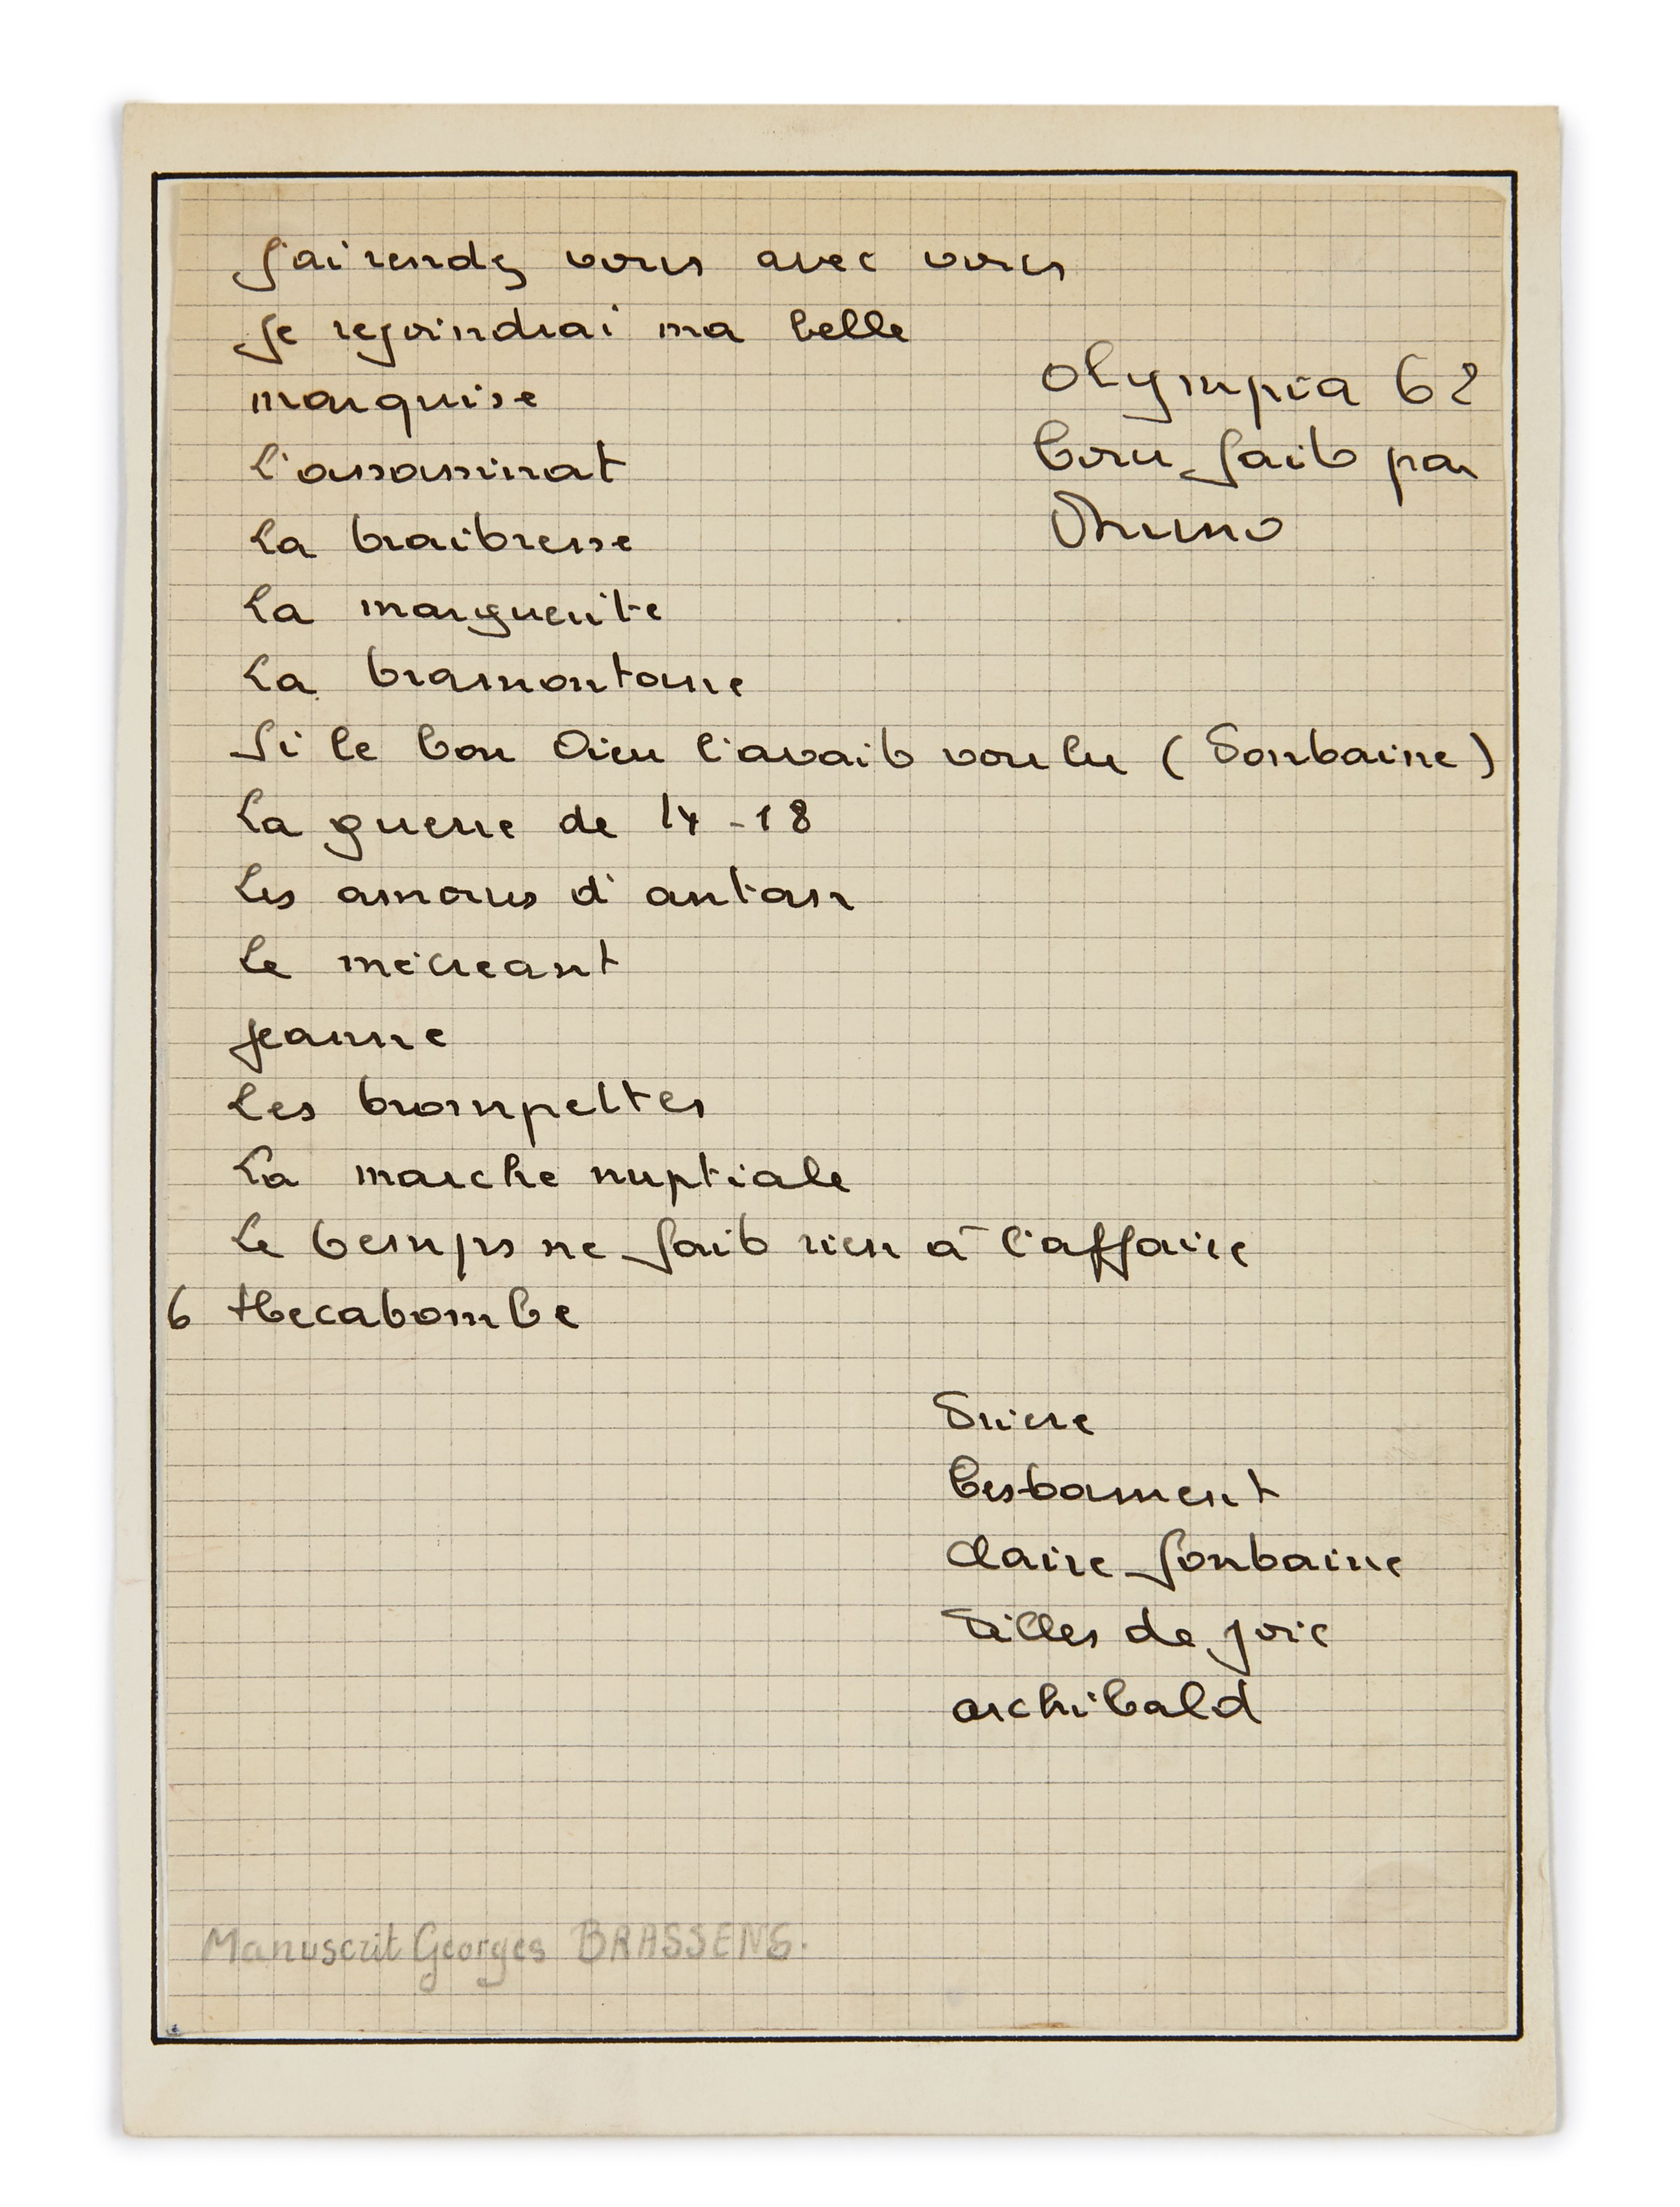 J'ai rendez vous avec vous
Je rejoindrai ma belle
marquise
Olympia 62
l'assassinat
tour fait par
La traitresse
Bruno
La marguerite
La tramontane
Si le bon Dieu l'avait voulu (Fontaine)
La guerre de 14-18
Les amours d'antan
Le mécréant
Jeanne
Les trompettes
La marche nuptiale
Le temps ne fait rien à l'affaire
6 Hecatombe
Prière
testament
Claire fontaine
Filles de joie
archibald
Manuscrit Georges BRASSENS.